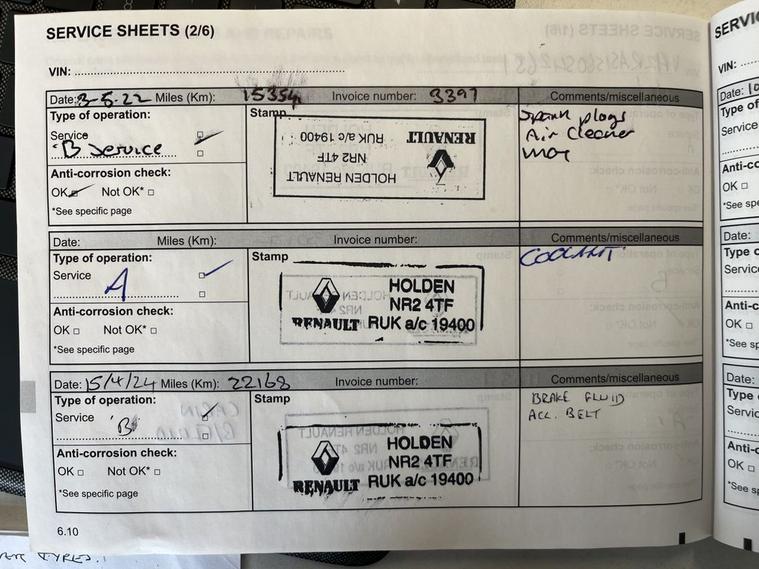 SERVICE SHEETS (2/6)
VIN:
Date: 3-5-22 Miles (Km): 15354 Invoice number: 3397 Comments/miscellaneous
Type of operation: Stamp Spark plugs
Service Air Cleaner
'B Service MOT
RENAULT
RUK a/c 19400
NR2 4TF
HOLDEN RENAULT
Anti-corrosion check:
OK Not OK*
*See specific page
Date: Miles (Km): Invoice number: Comments/miscellaneous
Type of operation: Stamp COOLANT
Service
A
HOLDEN
NR2 4TF
RENAULT RUK a/c 19400
Anti-corrosion check:
OK Not OK*
*See specific page
Date: 15/4/24 Miles (Km): 22168 Invoice number: Comments/miscellaneous
Type of operation: Stamp BRAKE FLUID
Service ACC. BELT
'B'
HOLDEN
NR2 4TF
RENAULT RUK a/c 19400
Anti-corrosion check:
OK Not OK*
*See specific page
6.10
TYRES.
VIN:
Date:
Type of
Service
Anti-co
OK
*See spe
Date:
Type o
Service
Anti-c
OK
*See sp
Date:
Type
Servic
Anti-c
OK
*See s